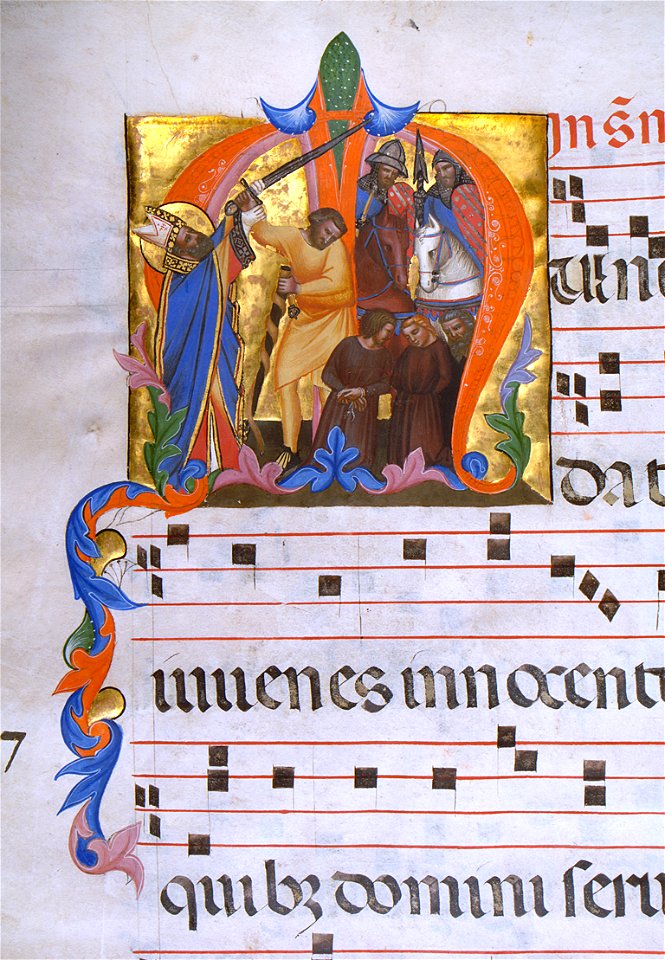 Jn S̄
une
dat
iuuenes innocent
7
quibz domini seru